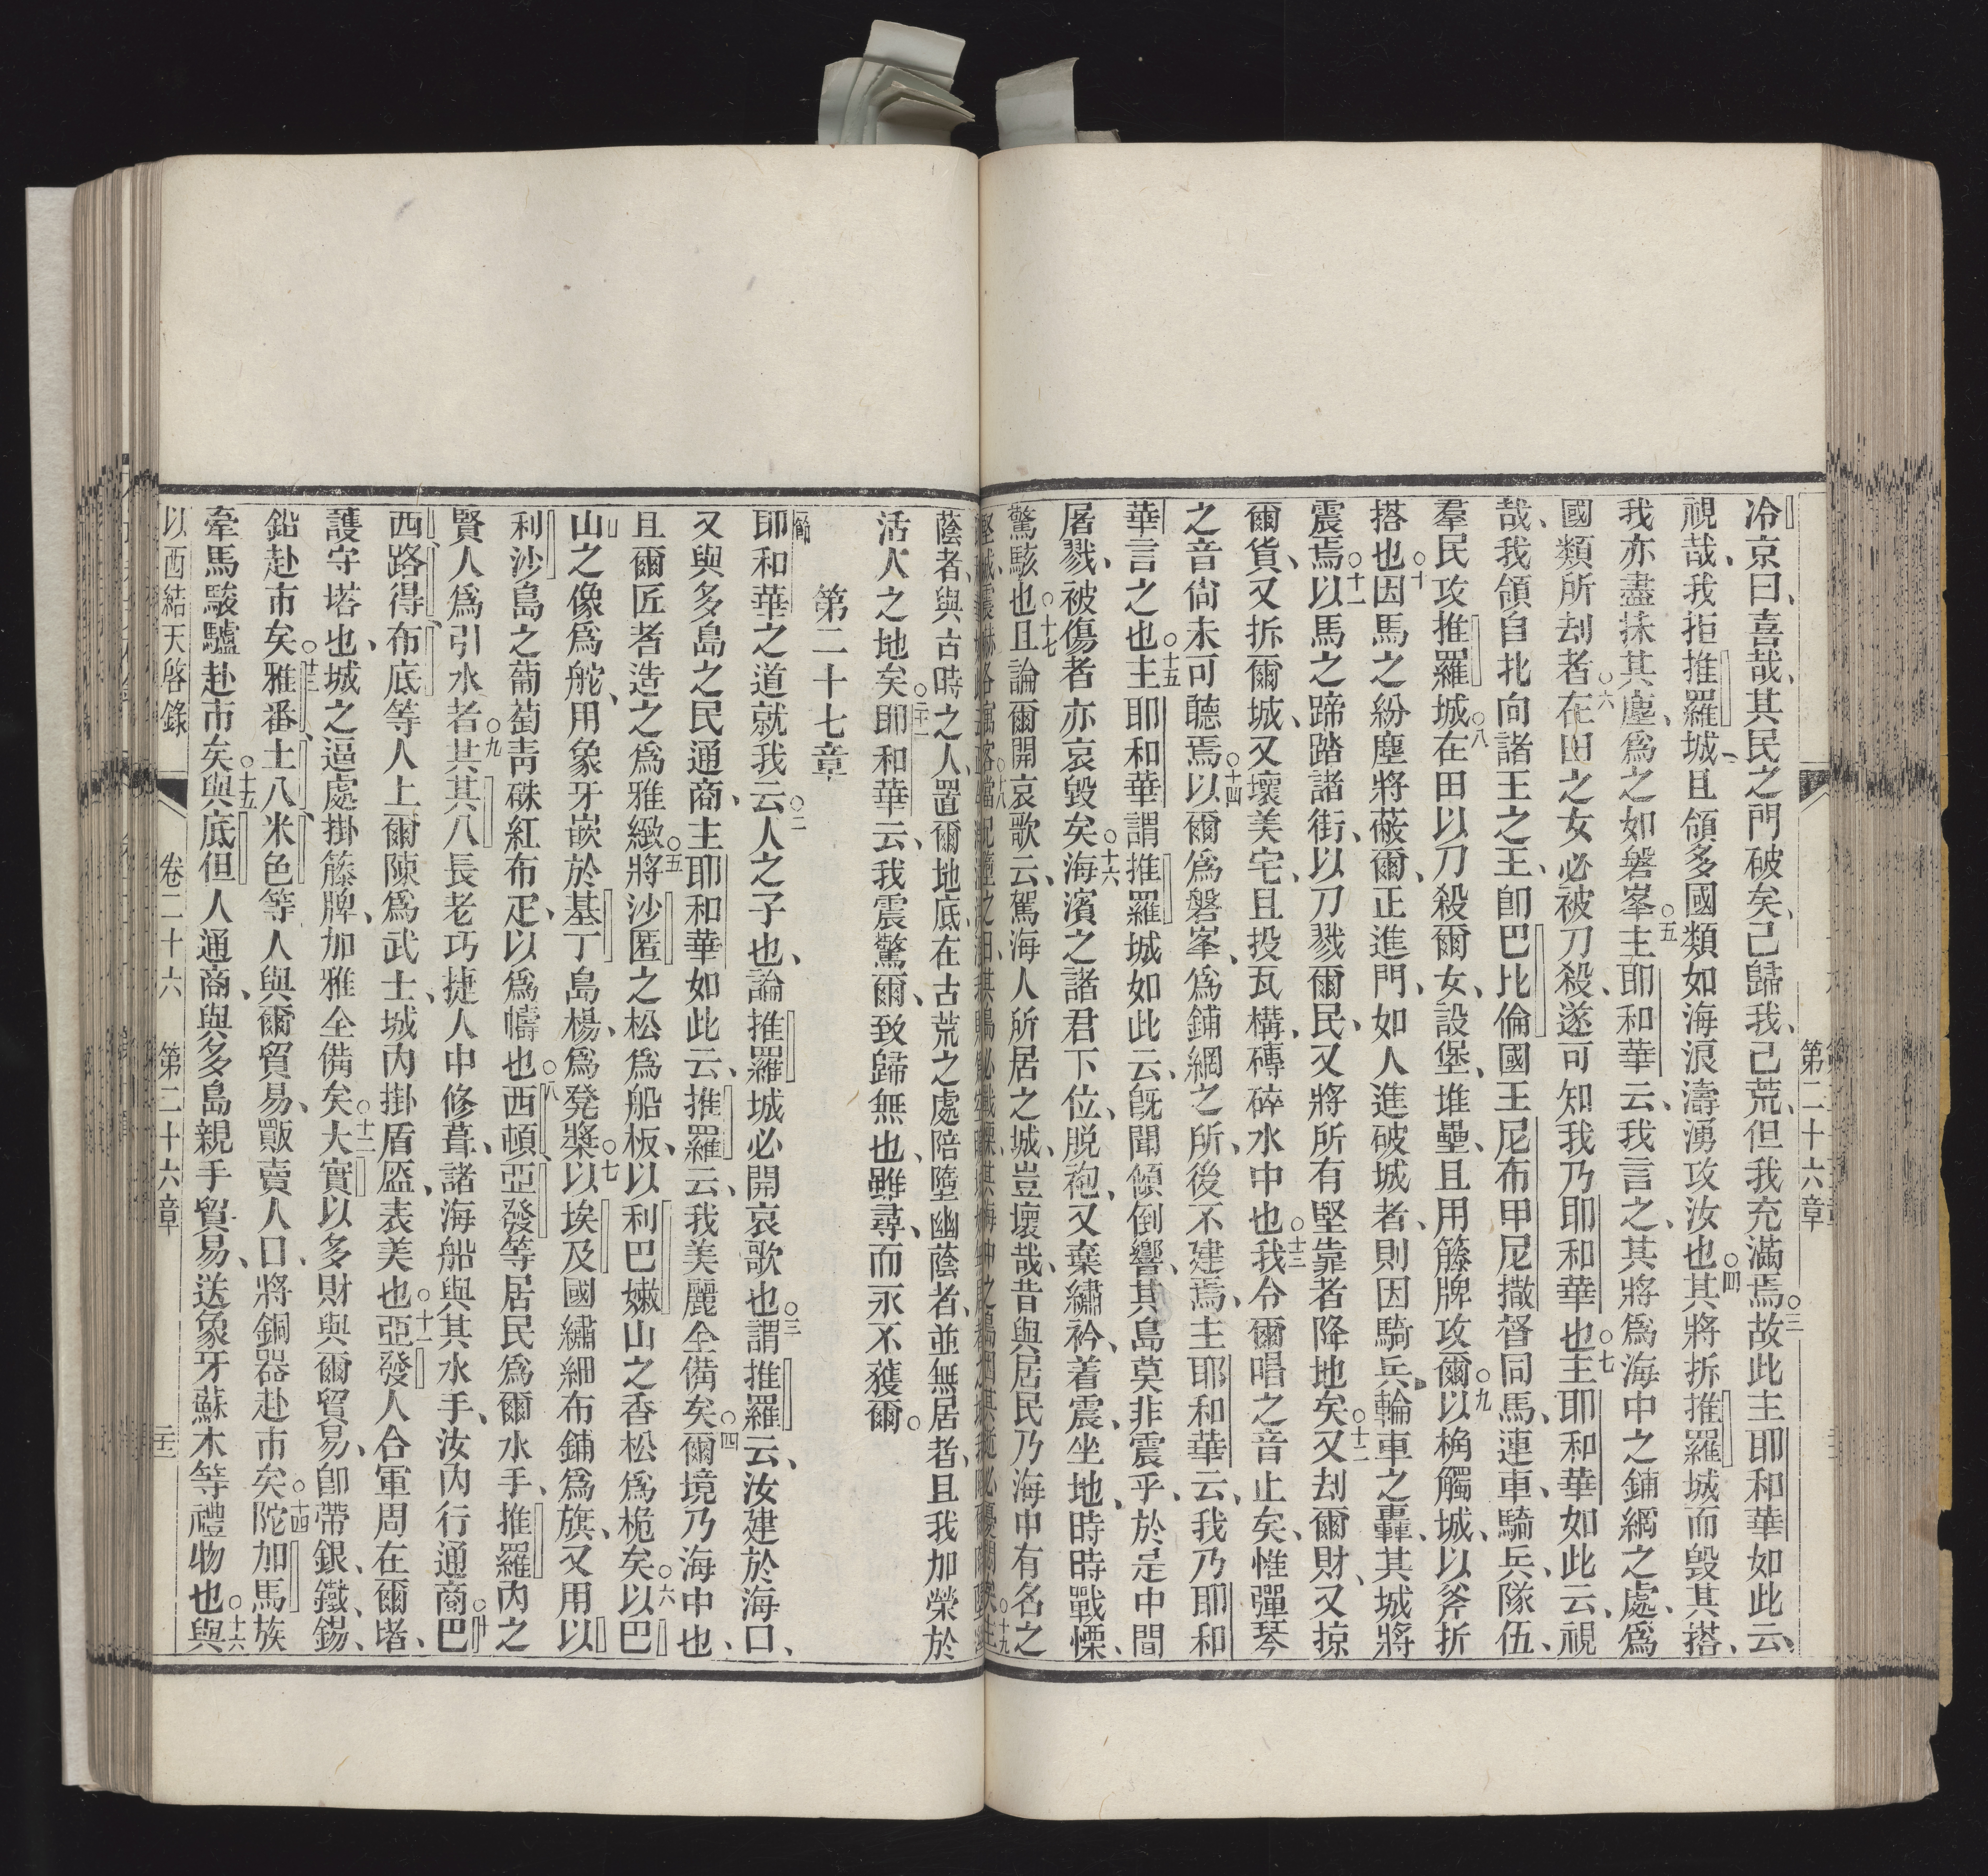 第二十六章
冷京曰、喜哉、其民之門破矣、己歸我、己荒、但我充滿焉○三故此主耶和華如此云、
視哉、我拒推羅城、且領多國類如海浪濤湧攻汝也○四其將拆推羅城而毀其搭、
我亦盡抹其塵、爲之如磐峯○五主耶和華云、我言之、其將爲海中之鋪網之處、爲
國類所刦者○六在田之女必被刀殺、遂可知我乃耶和華也○七主耶和華如此云、視
哉、我領自北向諸王之王、卽巴比倫國王尼布甲尼撒督同馬、連車、騎兵、隊伍、
羣民攻推羅城○八在田以刀殺爾女、設堡、堆壘、且用籐牌攻爾○九以桷觸城、以斧折
搭也○十因馬之紛塵將蔽爾、正進門、如人進破城者、則因騎兵輪車之轟、其城將
震焉○十一以馬之蹄踏諸街、以刀戮爾民、又將所有堅靠者降地矣○十二又刦爾財、又掠
爾貨、又拆爾城、又壞美宅、且投瓦構、磚碎水中也○十三我令爾唱之音止矣、惟彈琴
之音尙未可聽焉○十四以爾爲磐峯、爲鋪網之所、後不建焉、主耶和華云、我乃耶和
華言之也○十五主耶和華謂推羅城如此云、旣聞傾倒響、其島莫非震乎、於是中間
屠戮、被傷者亦哀毀矣○十六海濱之諸君下位、脱袍、又棄繡衿、着震、坐地、時時戰慄、
驚駭也○十七且論爾開哀歌云、駕海人所居之城、豈壞哉、昔與居民乃海中有名之
蔭者、與古時之人、置爾地底、在古荒之處陪墮幽蔭者、並無居者、且我加榮於
活人之地矣○二十一耶和華云、我震驚爾、致歸無也、雖尋、而永不獲爾。
第二十七章
節耶和華之道就我云○二人之子也、論推羅城必開哀歌也○三謂推羅云、汝建於海口、
又與多島之民通商、主耶和華如此云、推羅云、我美麗全備矣○四爾境乃海中也、
且爾匠者造之爲雅緻○五將沙匿之松爲船板、以利巴嫩山之香松爲桅矣○六以巴
山之像爲舵、用象牙嵌於基丁島楊、爲凳槳○七以埃及國繡細布鋪爲旗、又用以
利沙島之葡萄靑硃紅布疋、以爲幬也○八西頓、亞發等居民爲爾水手、推羅內之
賢人爲引水者○九其其八長老巧捷人中修葺、諸海船與其水手、汝內行通商○十巴
西、路得、布底等人上爾陳爲武士、城內掛盾盔、表美也○十一亞發人合軍周在爾堵、
護守塔也、城之逼處掛籐牌、加雅全備矣○十二大實以多財與爾貿易、卽帶銀、鐵、錫、
鉛赴市矣○十三雅番、土八、米色等人與爾貿易、販賣人口、將銅器赴市矣○十四陀加馬族
牽馬駿驢赴市矣○十五與底但人通商、與多島親手貿易、送象牙蘇木等禮物也○十六與
以西結天啓錄　卷二十六　第二十六章